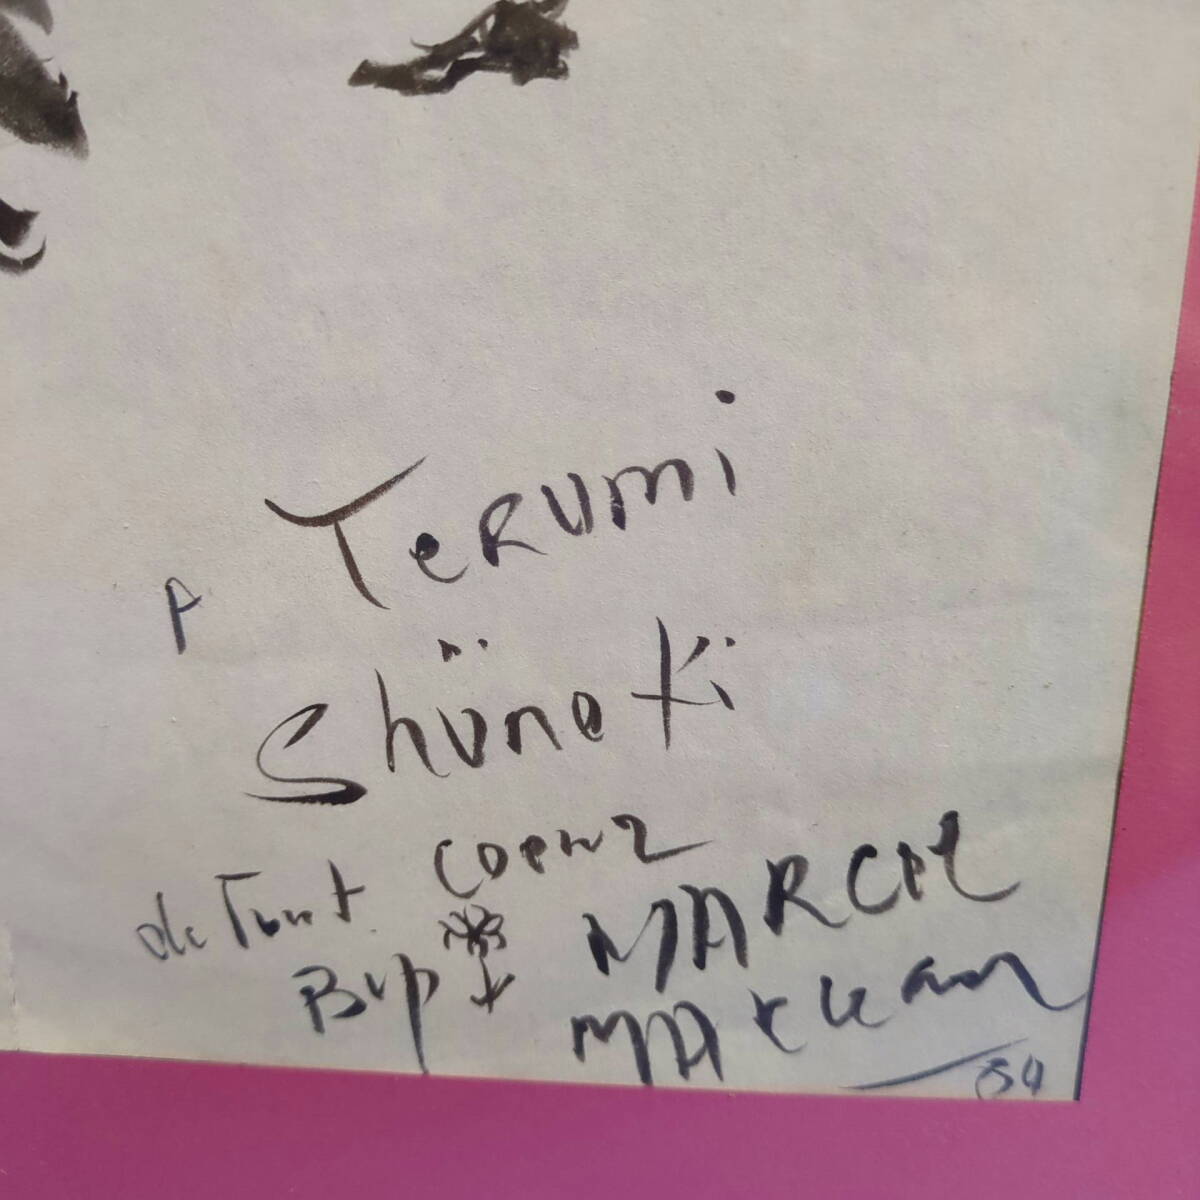 A Terumi
Shünoki
de Tout Coeur
Bip MARCEL
MARCEAU
84